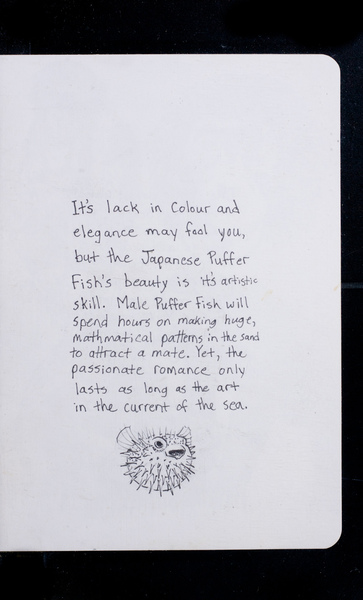 It's lack in Colour and
elegance may fool you,
but the Japanese Puffer
Fish's beauty is it's artistic
skill. Male Puffer Fish will
spend hours on making huge,
mathmatical patterns in the sand
to attract a mate. Yet, the
passionate romance only
lasts as long as the art
in the current of the sea.